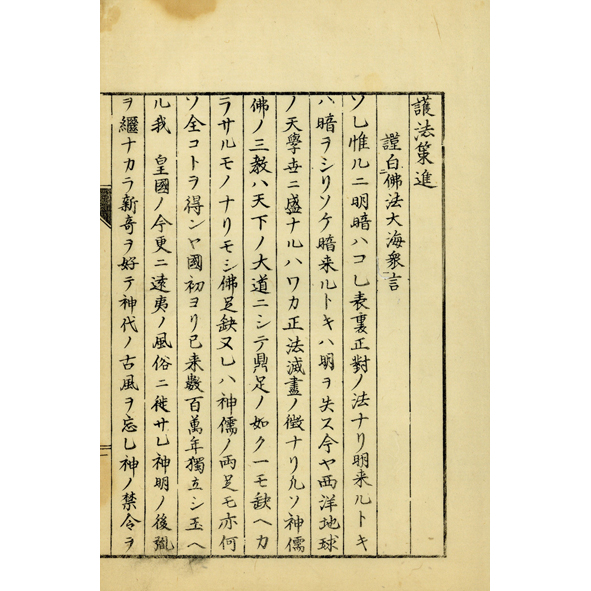 護法策進
謹白佛法大海衆言
ソレ惟ルニ明暗ハコレ表裏正對ノ法ナリ明来ルトキ
ハ暗ヲシリソケ暗来ルトキハ明ヲ失ス今ヤ西洋地球
ノ天學世ニ盛ナルハワカ正法滅盡ノ徴ナリ凡ソ神儒
佛ノ三教ハ天下ノ大道ニシテ鼎足ノ如ク一モ缺ヘカ
ラサルモノナリモシ佛足缺又レハ神儒ノ両足モ亦何
ソ全コトヲ得ンヤ國初ヨリ已来數百萬年獨立シ玉ヘ
ル我 皇國ノ今更ニ遠夷ノ風俗ニ徙サレ神明ノ後胤
ヲ繼ナカラ新奇ヲ好テ神代ノ古風ヲ忘レ神ノ禁令ヲ